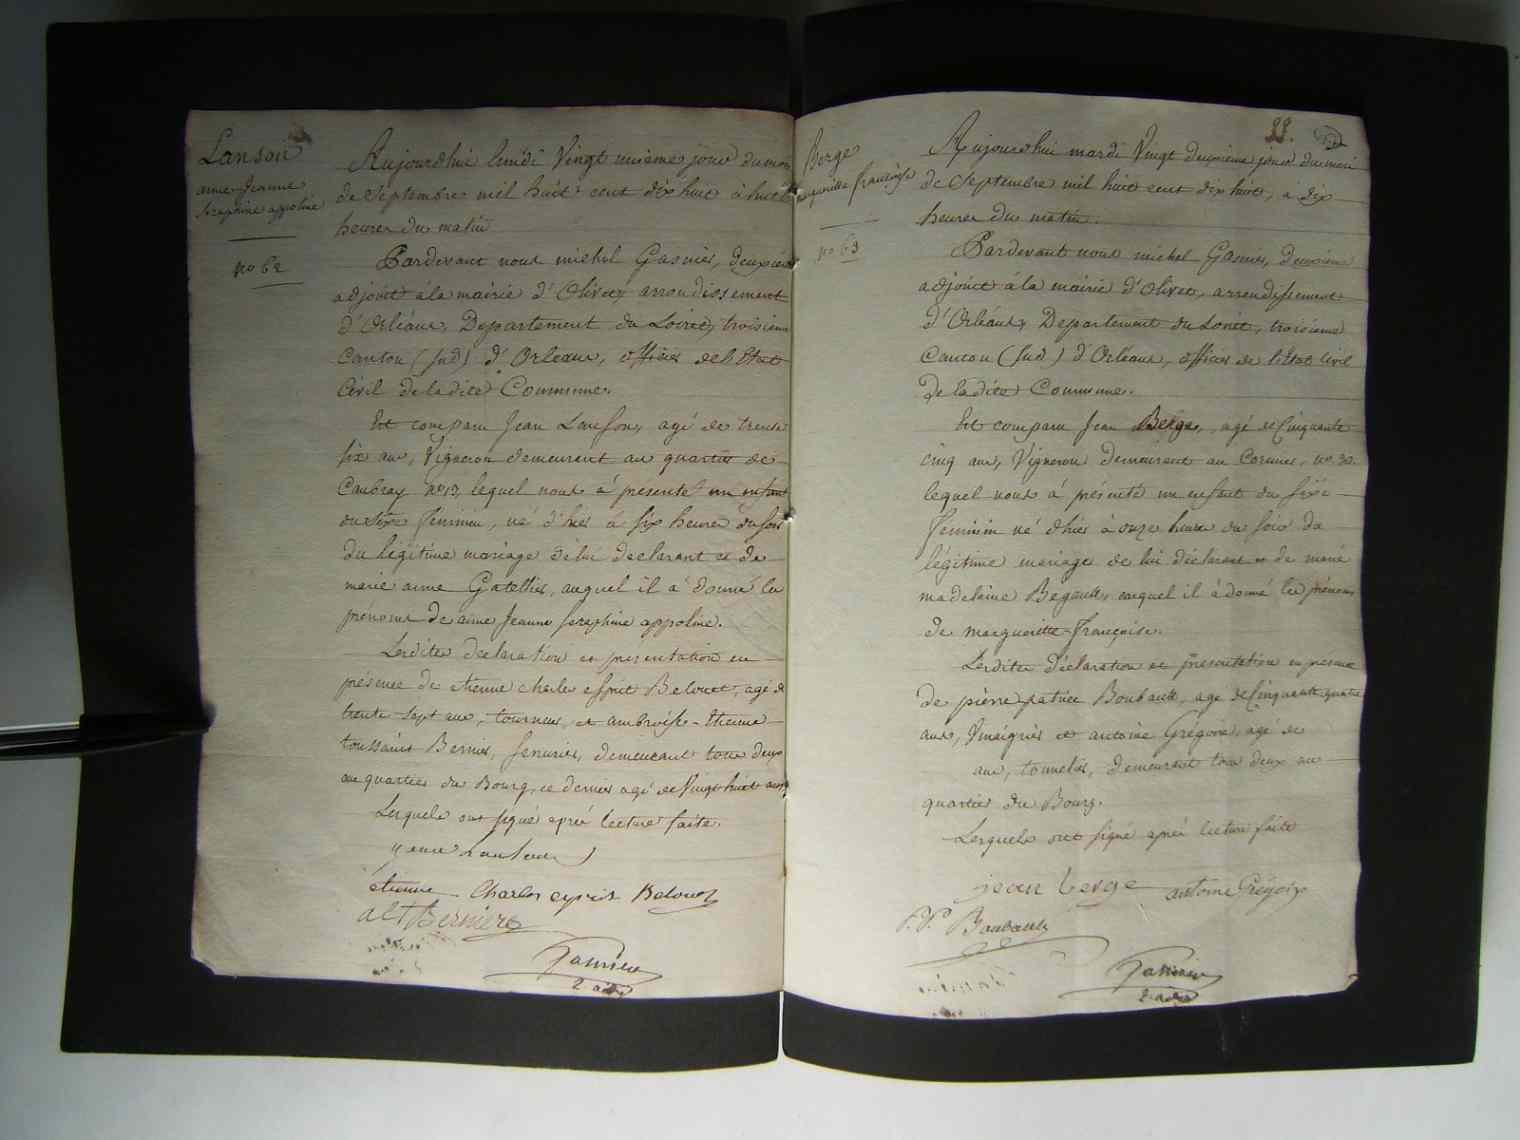 Lanson
anne Jeanne
Séraphine appoline
no 62
Aujourdhui lundi Vingt unième jour du mois
de Septembre mil huit cent dix huit à huit
heures du matin
Pardevant nous michel Gasnier, deuxieme
adjoint à la mairie d'Olivet, arrondissement
d'Orléans, Departement du Loiret, troisieme
Canton (Sud) d'Orleans, officier de l'Etat
Civil de la dite Commune.
Est comparu Jean Lanson, agé de trente
six ans, Vigneron demeurant au quartier de
Caubray no 13, lequel nous à présenté un enfant
du sexe féminin, né d'hier à six heures du soir
du légitime mariage de lui declarant et de
marie anne Gatellier, auquel il a donné les
prénoms de anne Jeanne Seraphine appoline.
Lesdites declaration et presentation en
présence de etienne charles esprit Belouet, agé de
trente sept ans, tourneur, et ambroise-Etienne
toussaint Bernier, serrurier, demeurant tous deux
au quartier du Bourg, ce dernier agé de Vingt huit ans
Lesquels ont signé après lecture faite.
étienne Charles esprit Belouet
a e t Bernier
Gasnier
2e adjt
22.
Berge
marguerite françoise
no 63
Aujourdhui mardi Vingt deuxieme jour du mois
de Septembre mil huit cent dix huit, à dix
heures du matin.
Pardevant nous michel Gasnier, deuxieme
adjoint à la mairie d'Olivet, arrondissement
d'Orléans, Departement du Loiret, troisieme
Canton (Sud) d'Orléans, officier de l'Etat Civil
de la dite Commune.
Est comparu Jean Berge, agé de Cinquante
cinq ans, Vigneron demeurant au Cormier, no. 30.
lequel nous à présenté un enfant du sexe
féminin né d'hier à onze heures du soir du
légitime mariage de lui déclarant et de marie
madelaine Begault, auquel il à donné les prénoms
de marguerite françoise.
Lesdites déclaration et presentation en presence
de pierre patrice Boubault, agé de Cinquante quatre
ans, Vinaigrier et antoine Grégoire, agé de
ans, tonnelier, demeurant tous deux au
quartier du Bourg.
Lesquels ont signé après lecture faite
jean berge antoine Grégoire
P. P. Boubault
Gasnier
2e adjt